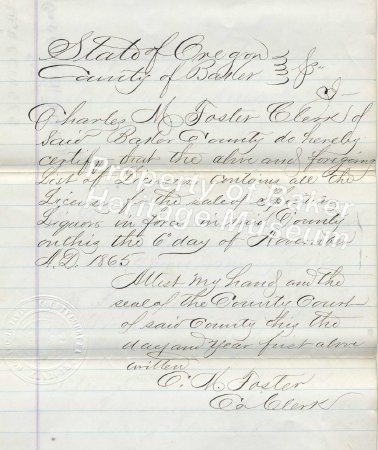 State of Oregon
County of Baker } ss
I
Charles M Foster Clerk of
Said Baker County do hereby
certify that the above and foregoing
List of Licenses contains all the
Licenses for the sale of
Liquors in force in said County
on this the 6 day of November
A.D. 1865
Attest my hand and the
seal of the County Court
of said County this the
day and year first above
written
C. M. Foster
Co Clerk
Property of Baker
Heritage Museum